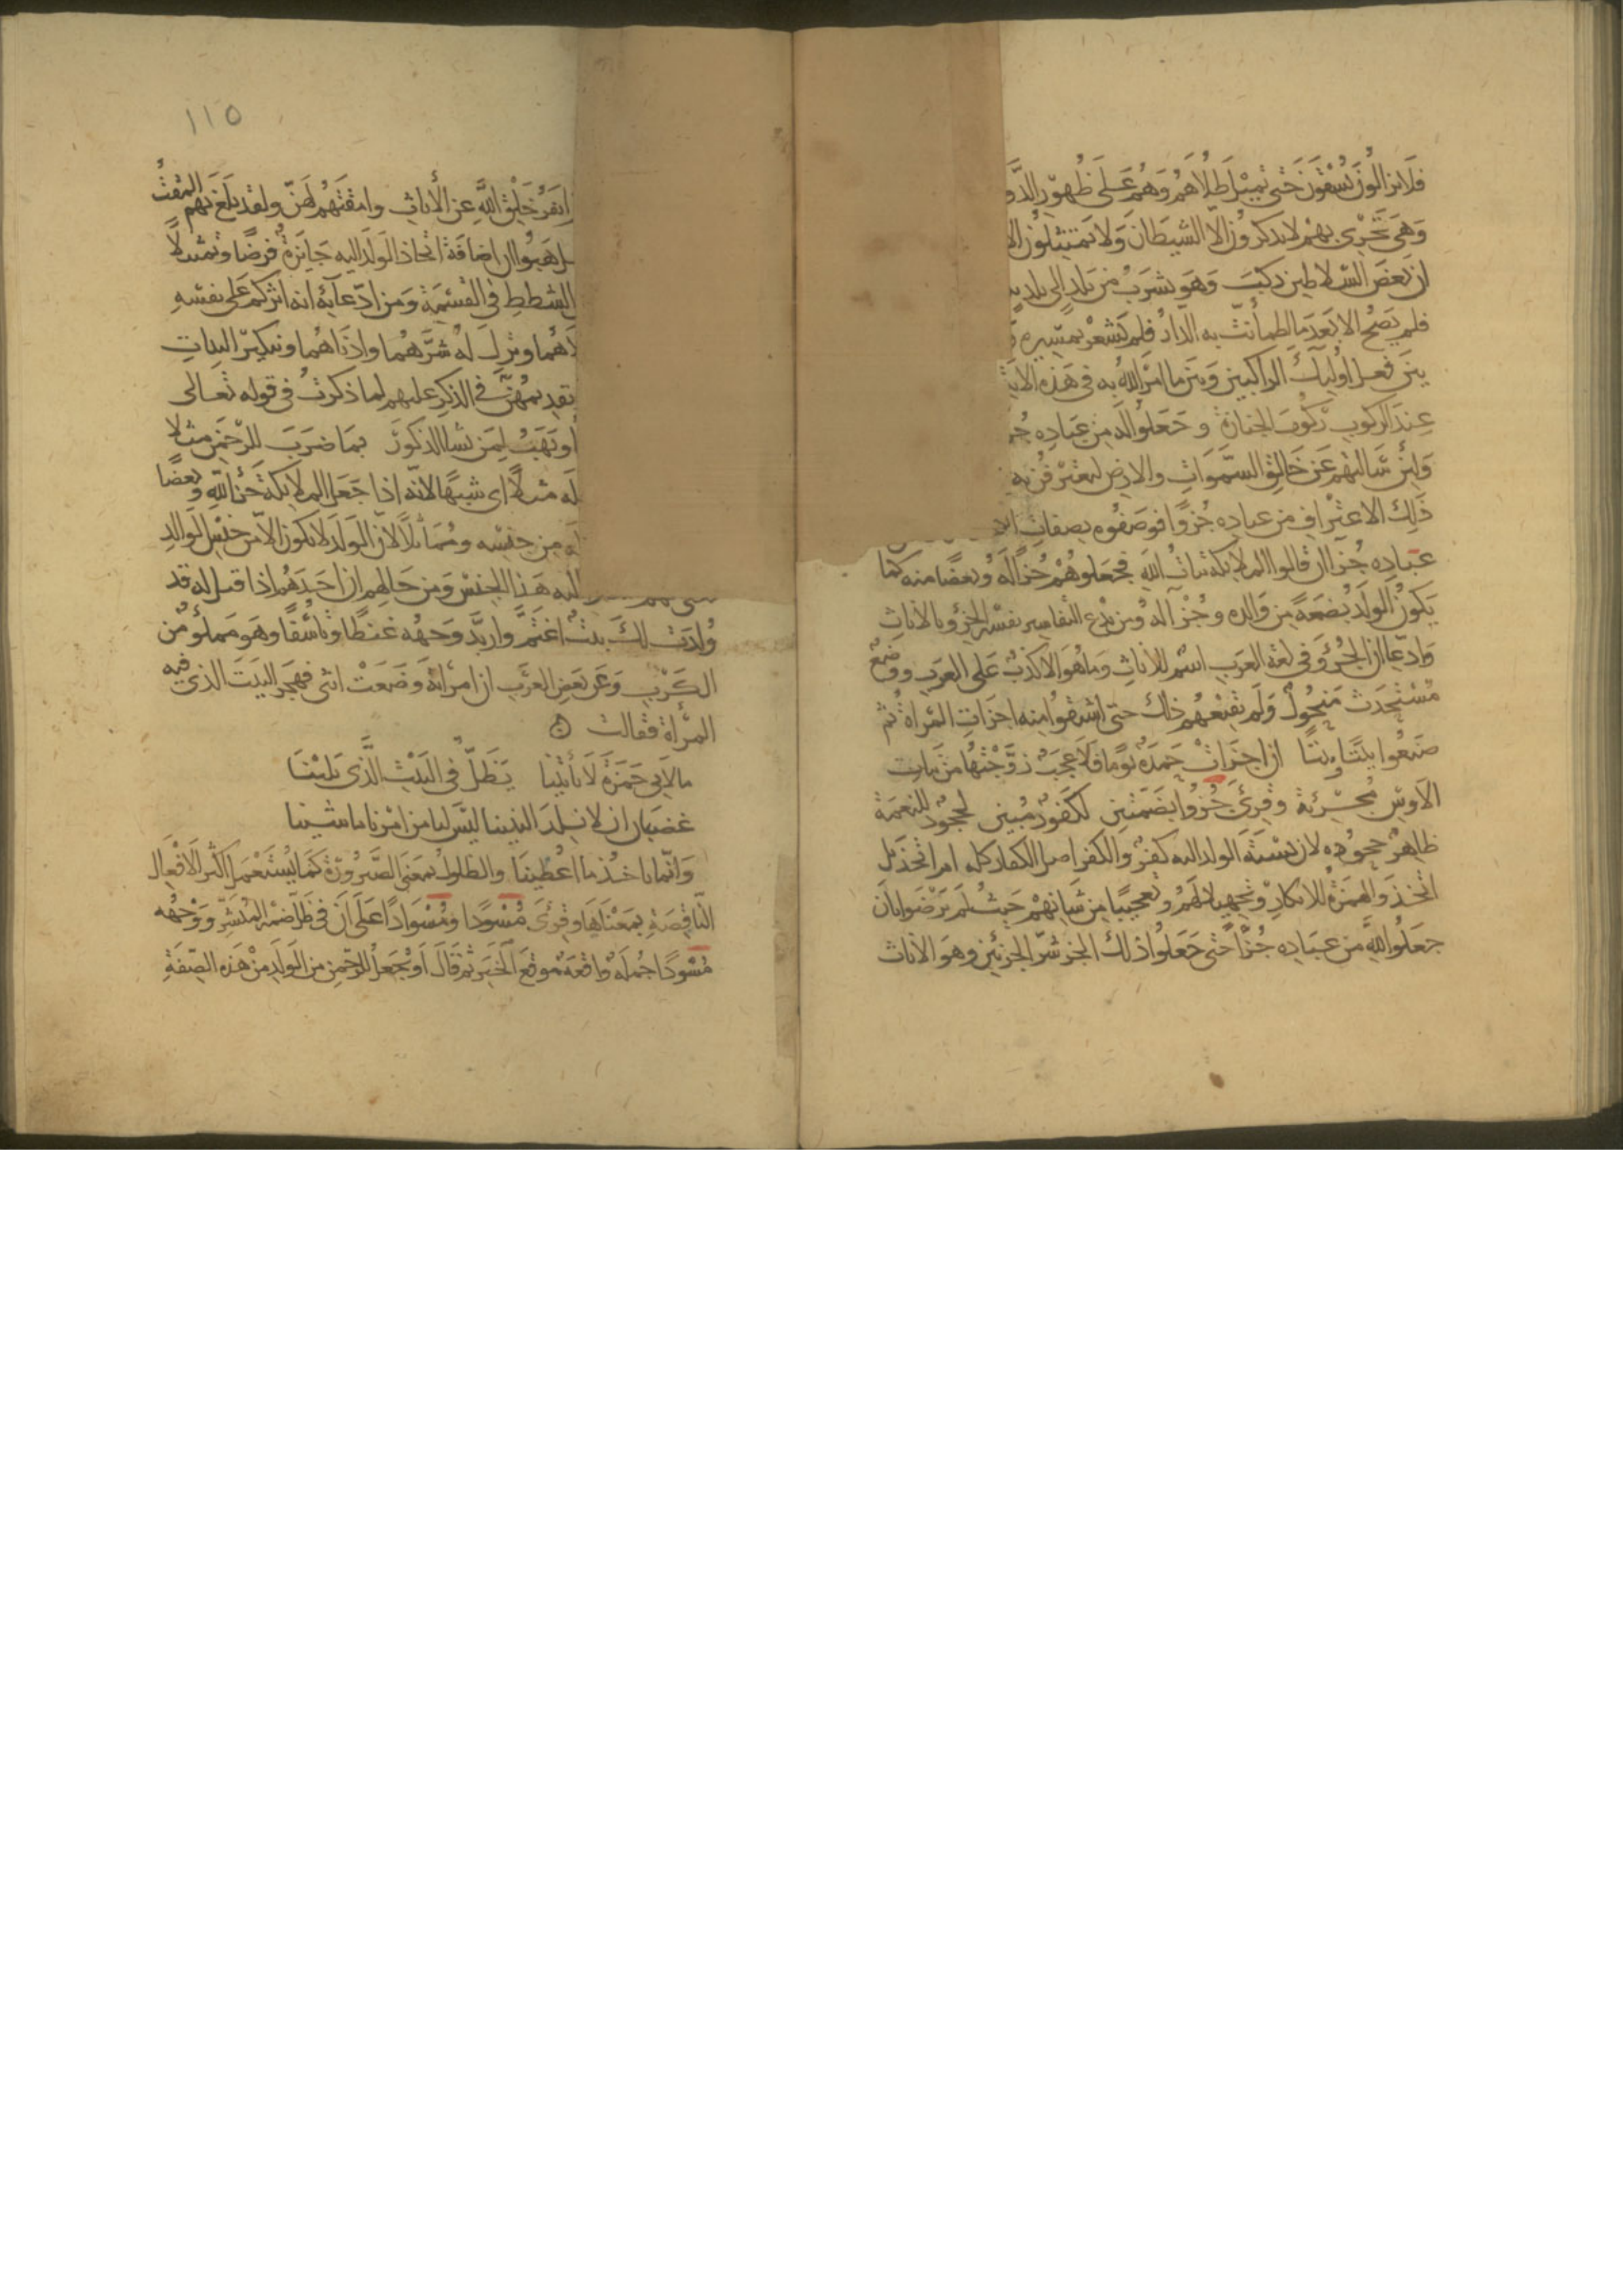 فلا يزالون يسقون حتى تميل طلاهم وهم على ظهور الدو
وهي تجري بهم لا يذكرون الا الشيطان ولا يمتثلون الا
ان بعض السلاطين ركب وهو يشرب من بلد الى بلد
فلم يصح الا بعد ما اطمأنت به الدار فلم يشعر بمسيره
بين فعل اوليك الراكبين وبين ما امر الله به في هذه الاية
عند الركوب ركوب الجنازة وجعلوا له من عباده جز
ولئن سالتهم عن خالق السموات والارض ليعترفن به
ذلك الاعتراف من عباده جزوا فوصفوه بصفات
عباده جزا ان قالوا الملايكة بنات الله فجعلوهم جزا له وبعضا منه كما
يكون الولد بضعة من والده وجزا له ومن بدع التفاسير تفسير الجزؤ بالاناث
وادعا ان الجزؤ في لغة العرب اسم للاناث وما هو الا كذب على العرب ووضع
مستحدث منحول ولم يقنعهم ذلك حتى اشتقوا منه اجزات المراة ثم
صنعوا بيتا وبيتا ان اجزات حرة يوما فلا عجب زوجتها من بنات
الاوس مجزئة وقرئ جزوا بضمتين لكفور مبين لجحود للنعمة
ظاهر جحوده لان نسبة الولد اليه كفر والكفر اصل الكفران كله ام اتخذ بل
اتخذ والهمزة للانكار تجهيلا لهم وتعجيبا من شانهم حيث لم يرضوا بان
جعلوا لله من عباده جزا حتى جعلوا ذلك الجز شر الجزئين وهو الاناث
١١٥
انفر خلق الله عن الاناث وامقتهم لهن ولقد بلغ بهم المقت
هبوا ان اضافة اتخاذ الولد اليه جايزة فرضا وتمثيلا
الشطط في القسمة ومن ادعايه انه اثركم على نفسه
هما وترك له شرهما وادناهما وتنكير البنات
تقديمهن في الذكر عليهم لما ذكرت في قوله تعالى
او يهب لمن يشا الذكور بما ضرب للرحمن مثلا
له مثلا اي شبها لانه اذا جعل الملايكة جزا لله وبعضا
من جنسه ومماثلا لان الولد لا يكون الا من جنس الوالد
اليه هذا الجنس ومن حالهم ان احدهم اذا قيل له قد
ولدت لك بنت اغتم واربد وجهه غيظا وتاسفا وهو مملؤ من
الكرب وعن بعض العرب ان امراته وضعت انثى فهجر البيت الذي فيه
المرأة فقالت
ما لابي حمزة لا ياتينا يظل في البيت الذي يلينا
غضبان ان لا نلد البنينا ليس لنا من امرنا ما شينا
وانما ناخذ ما اعطينا والظلول بمعنى الصيرورة كما يستعمل اكثر الافعال
الناقصة بمعناها وقرئ مسودا ومسوادا على ان في ظل ضمير المبشر ووجهه
مسودا جملة واقعة موقع الخبر ثم قال او يجعل للرحمن من الولد من هذه الصفة